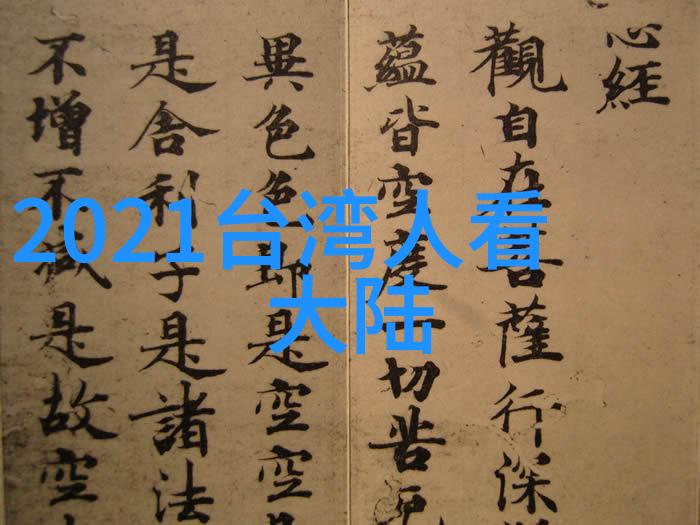 2021台湾人看
大陆
心經
觀自在菩薩行深
蘊皆空度一切苦厄
異色色即是空空
是舍利子是諸法
不增不減是故空